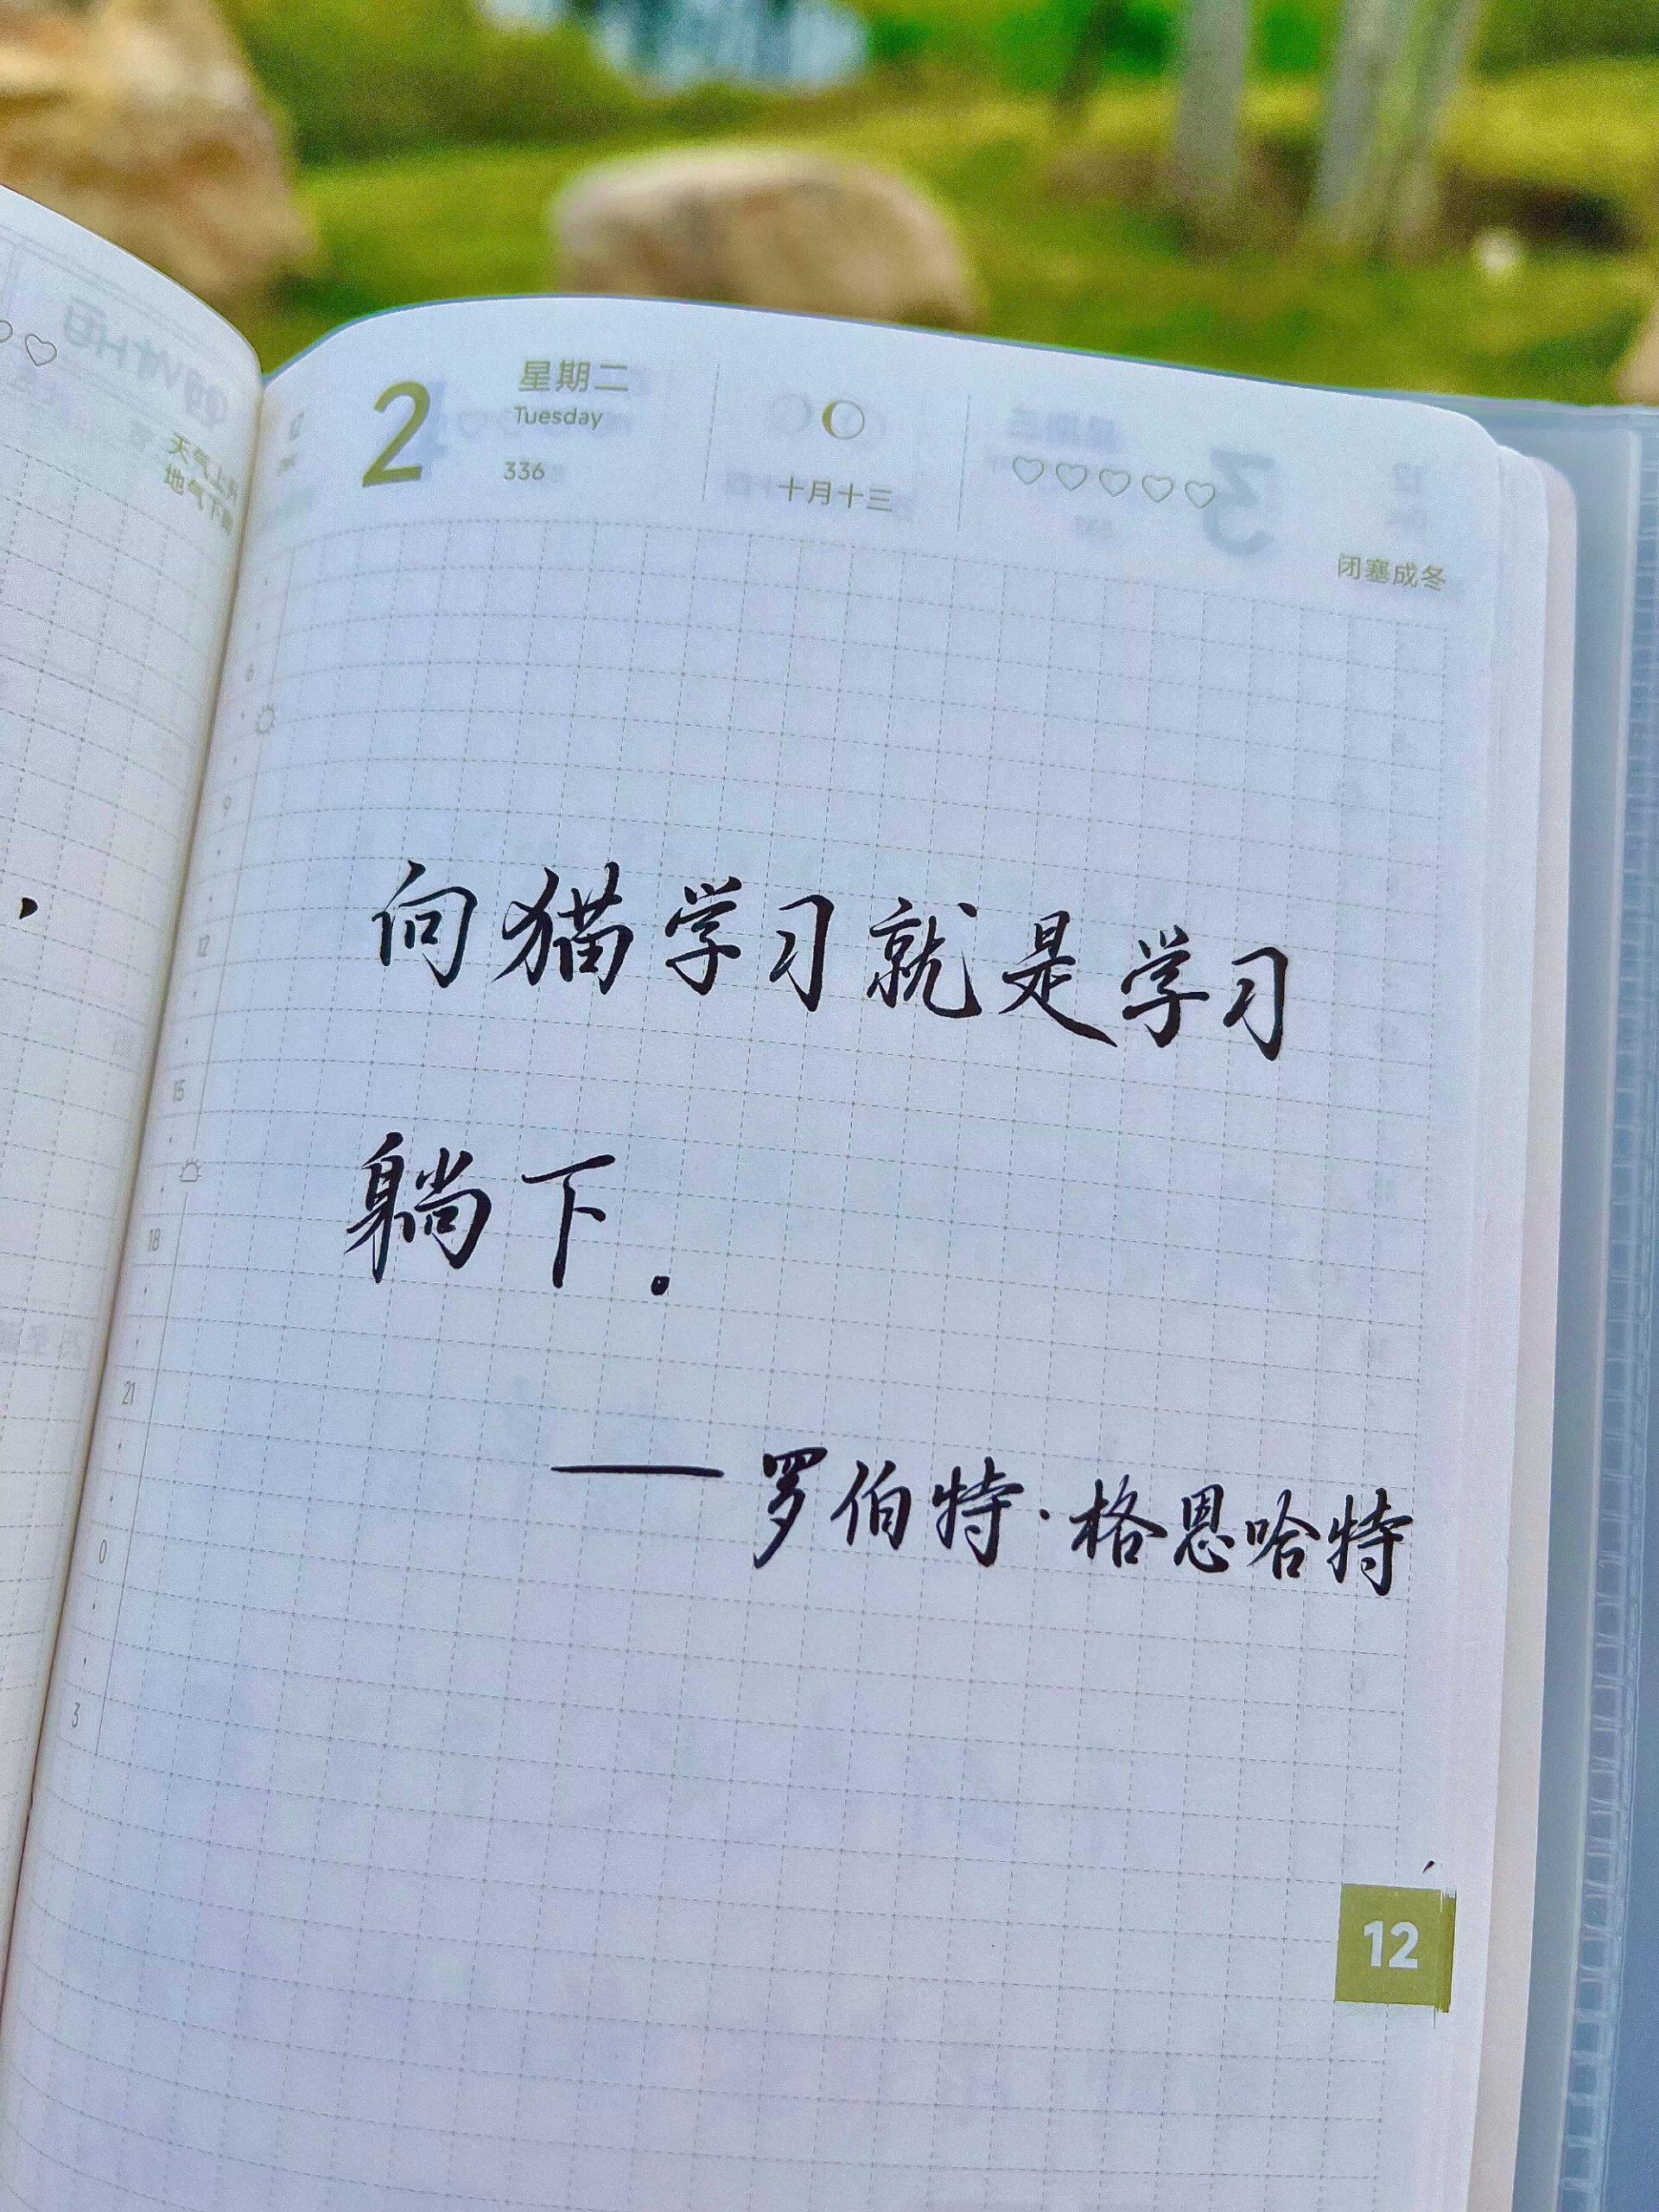 天气上升
地气下降
2
星期二
Tuesday
336
十月十三
闭塞成冬
6
9
12
15
18
21
0
3
向猫学习就是学习
躺下.
——罗伯特·格恩哈特
12